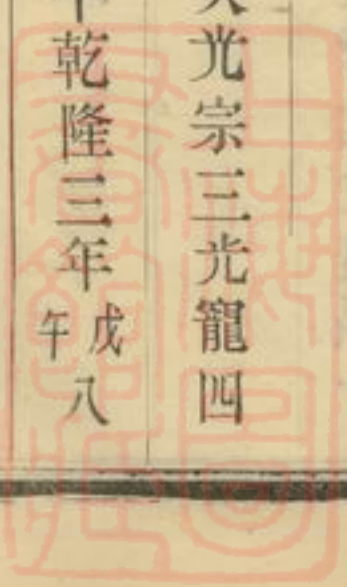 光宗三光寵四
乾隆三年戊午八